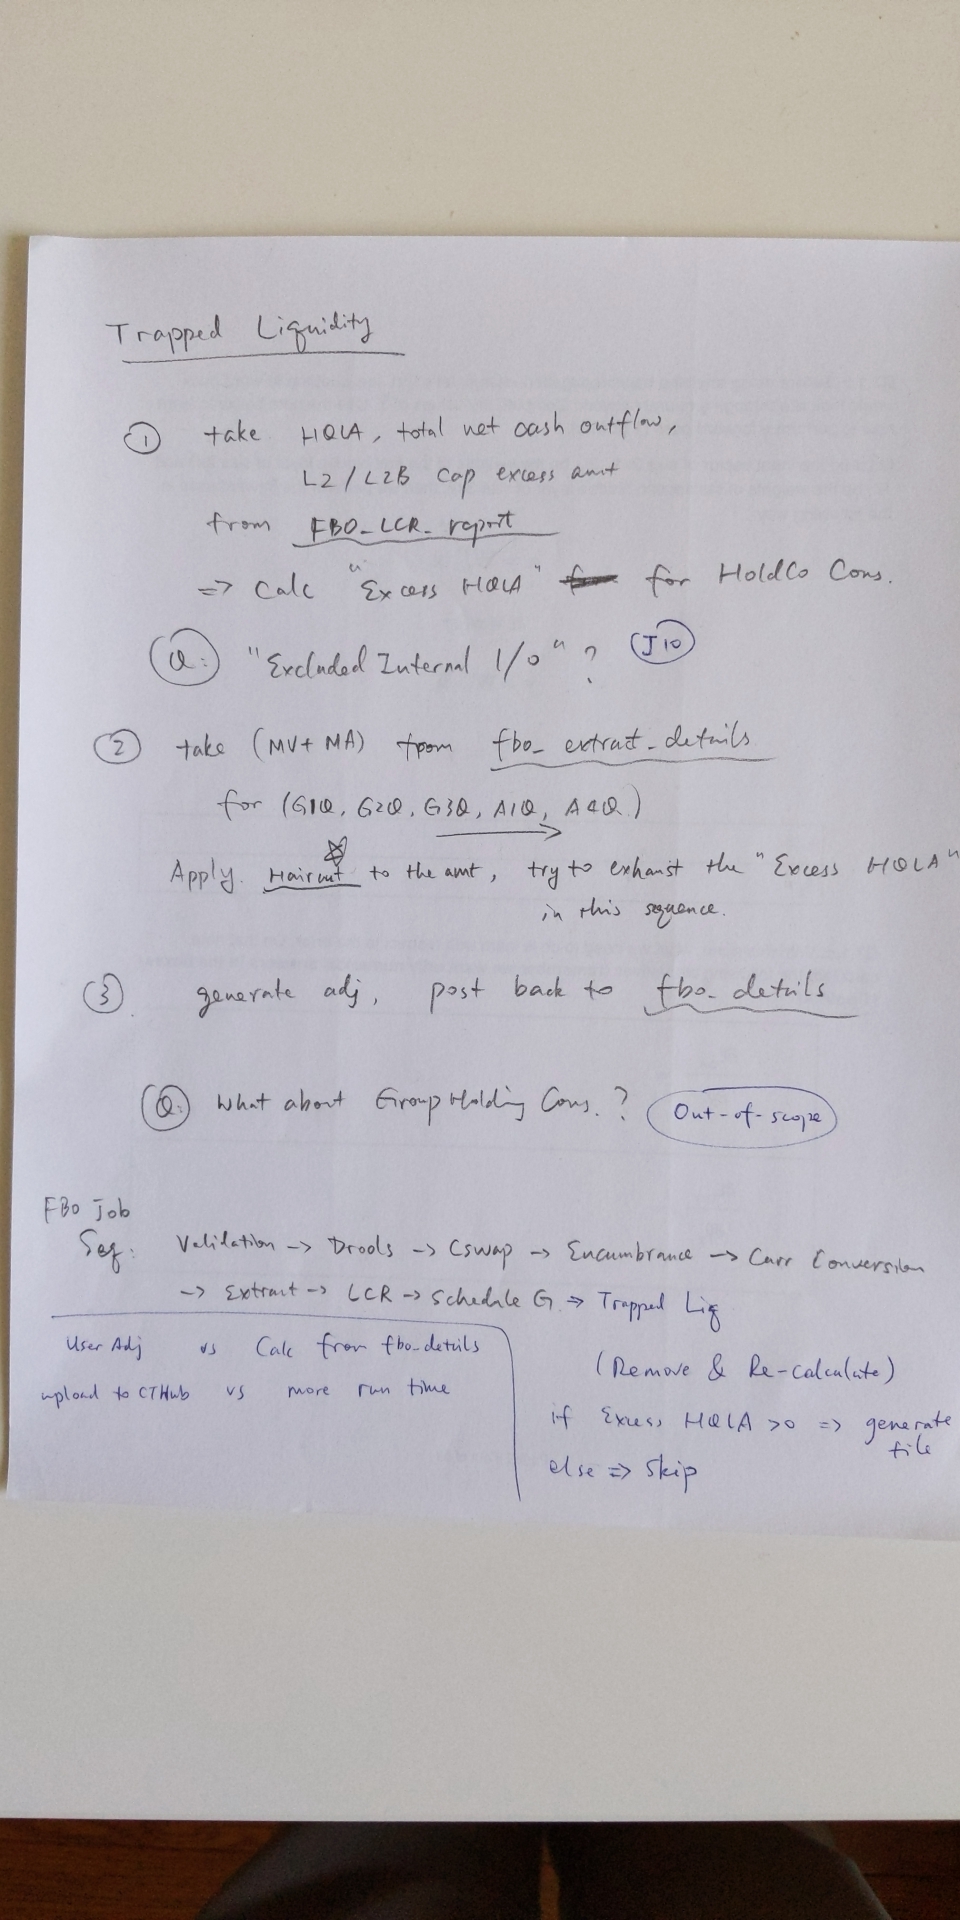 Trapped Liquidity
① take HQLA, total net cash outflow,
L2/L2B cap excess amt
from FBO_LCR_report
=> Calc "Excess HQLA" for HoldCo Cons.
Q: "Excluded Internal I/O"? J10
② take (MV+MA) from fbo_extract_details
for (G1Q, G2Q, G3Q, A1Q, A4Q)
Apply Haircut to the amt, try to exhaust the "Excess HQLA"
in this sequence.
③ generate adj, post back to fbo_details
Q: What about Group Holding Cons.? Out-of-scope
FBO Job
Seq: Validation -> Drools -> CSwap -> Encumbrance -> Curr Conversion
-> Extract -> LCR -> Schedule G => Trapped Liq
User Adj vs Calc from fbo_details
upload to CTHub vs more run time
(Remove & Re-calculate)
if Excess HQLA >0 => generate
file
else => Skip